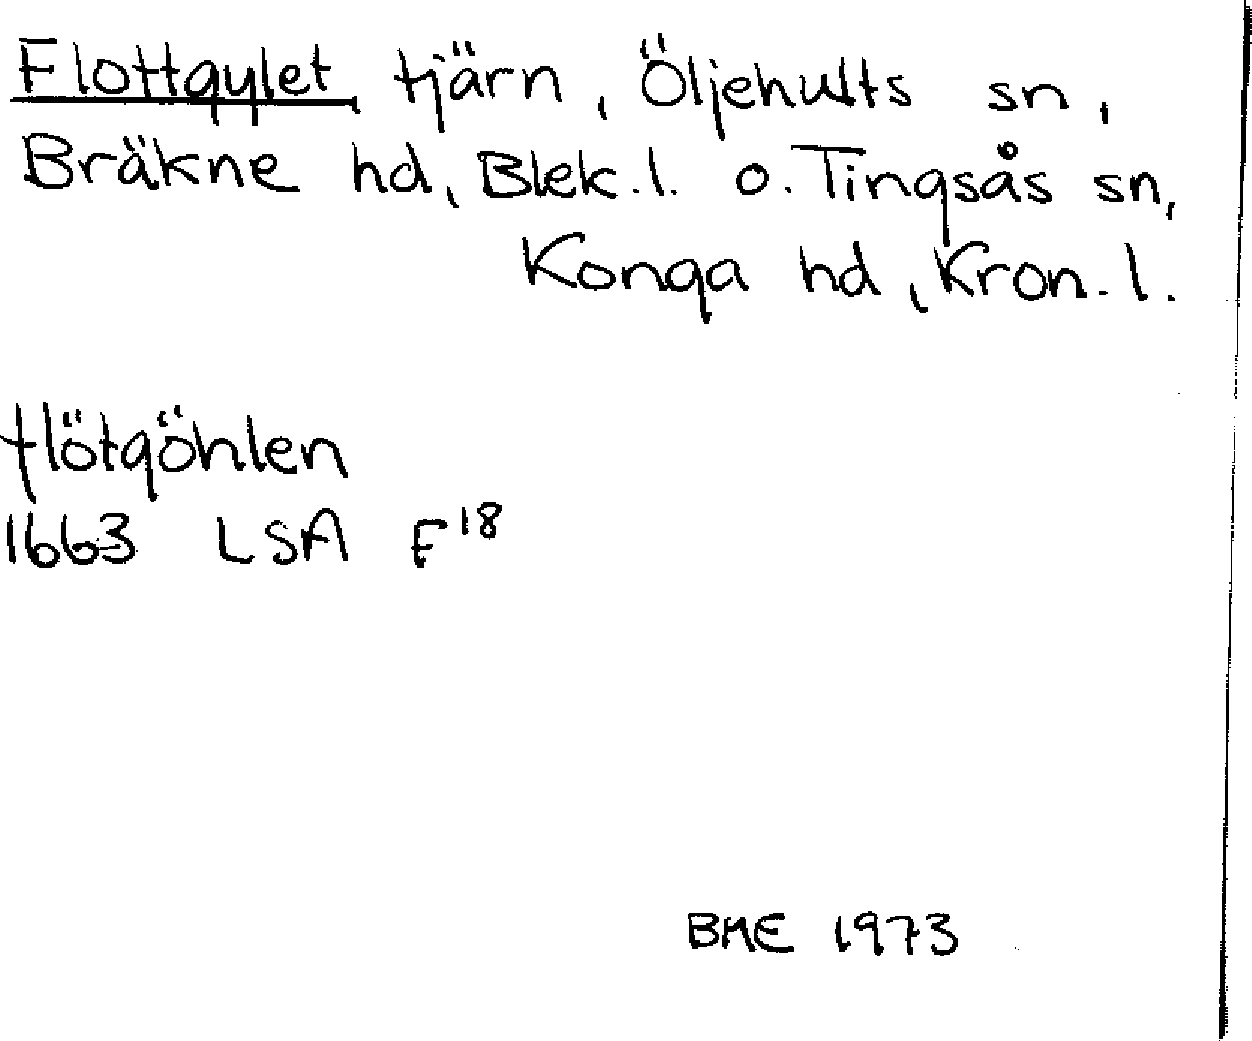 Flottgylet, tjärn, Öljehults sn,
Bräkne hd, Blek. l. o. Tingsås sn,
Konga hd, Kron. l.
flötgöhlen
1663 LSA F18
BME 1973